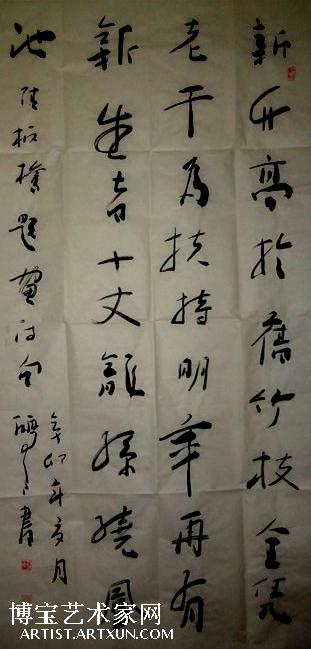 新竹高於舊竹枝全凭
老干为扶持明年再有
新生者十丈龍孫繞凤
池 郑板橋題畫诗句
辛卯年亥月
書
博宝艺术家网
ARTIST.ARTXUN.COM